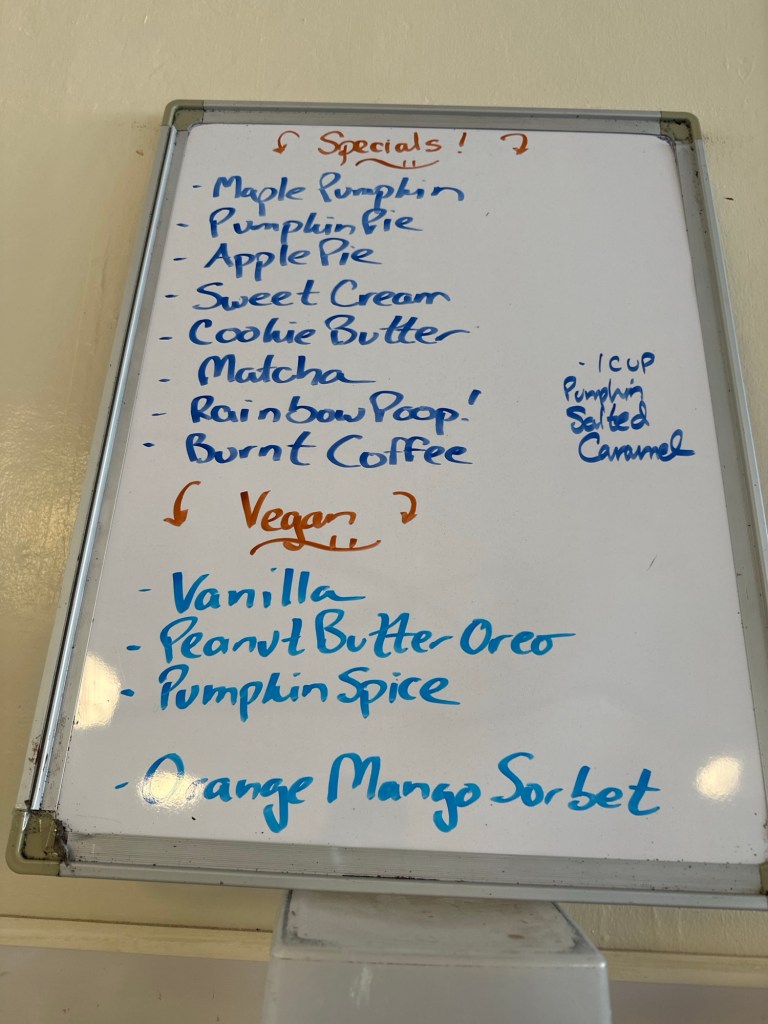 Specials!
- Maple Pumpkin
- Pumpkin Pie
- Apple Pie
- Sweet Cream
- Cookie Butter
- Matcha
- Rainbow Poop!
- Burnt Coffee
- 1 CUP
Pumpkin
Salted
Caramel
Vegan
- Vanilla
- Peanut Butter Oreo
- Pumpkin Spice
- Orange Mango Sorbet